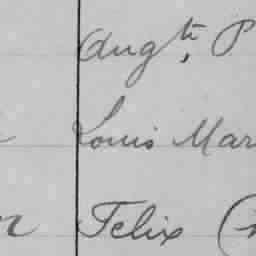 Augt, P
Louis Mar
n Felix (